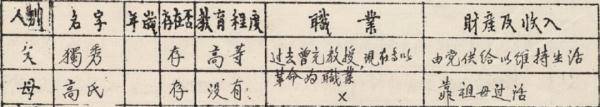 人别 名字 年龄 存在否 教育程度 職業 財產及收入
父 獨秀 存 高等 过去曾充教授，现在專以 由党供给以维持生活
革命为職業
母 高氏 存 没有 × 靠祖母过活